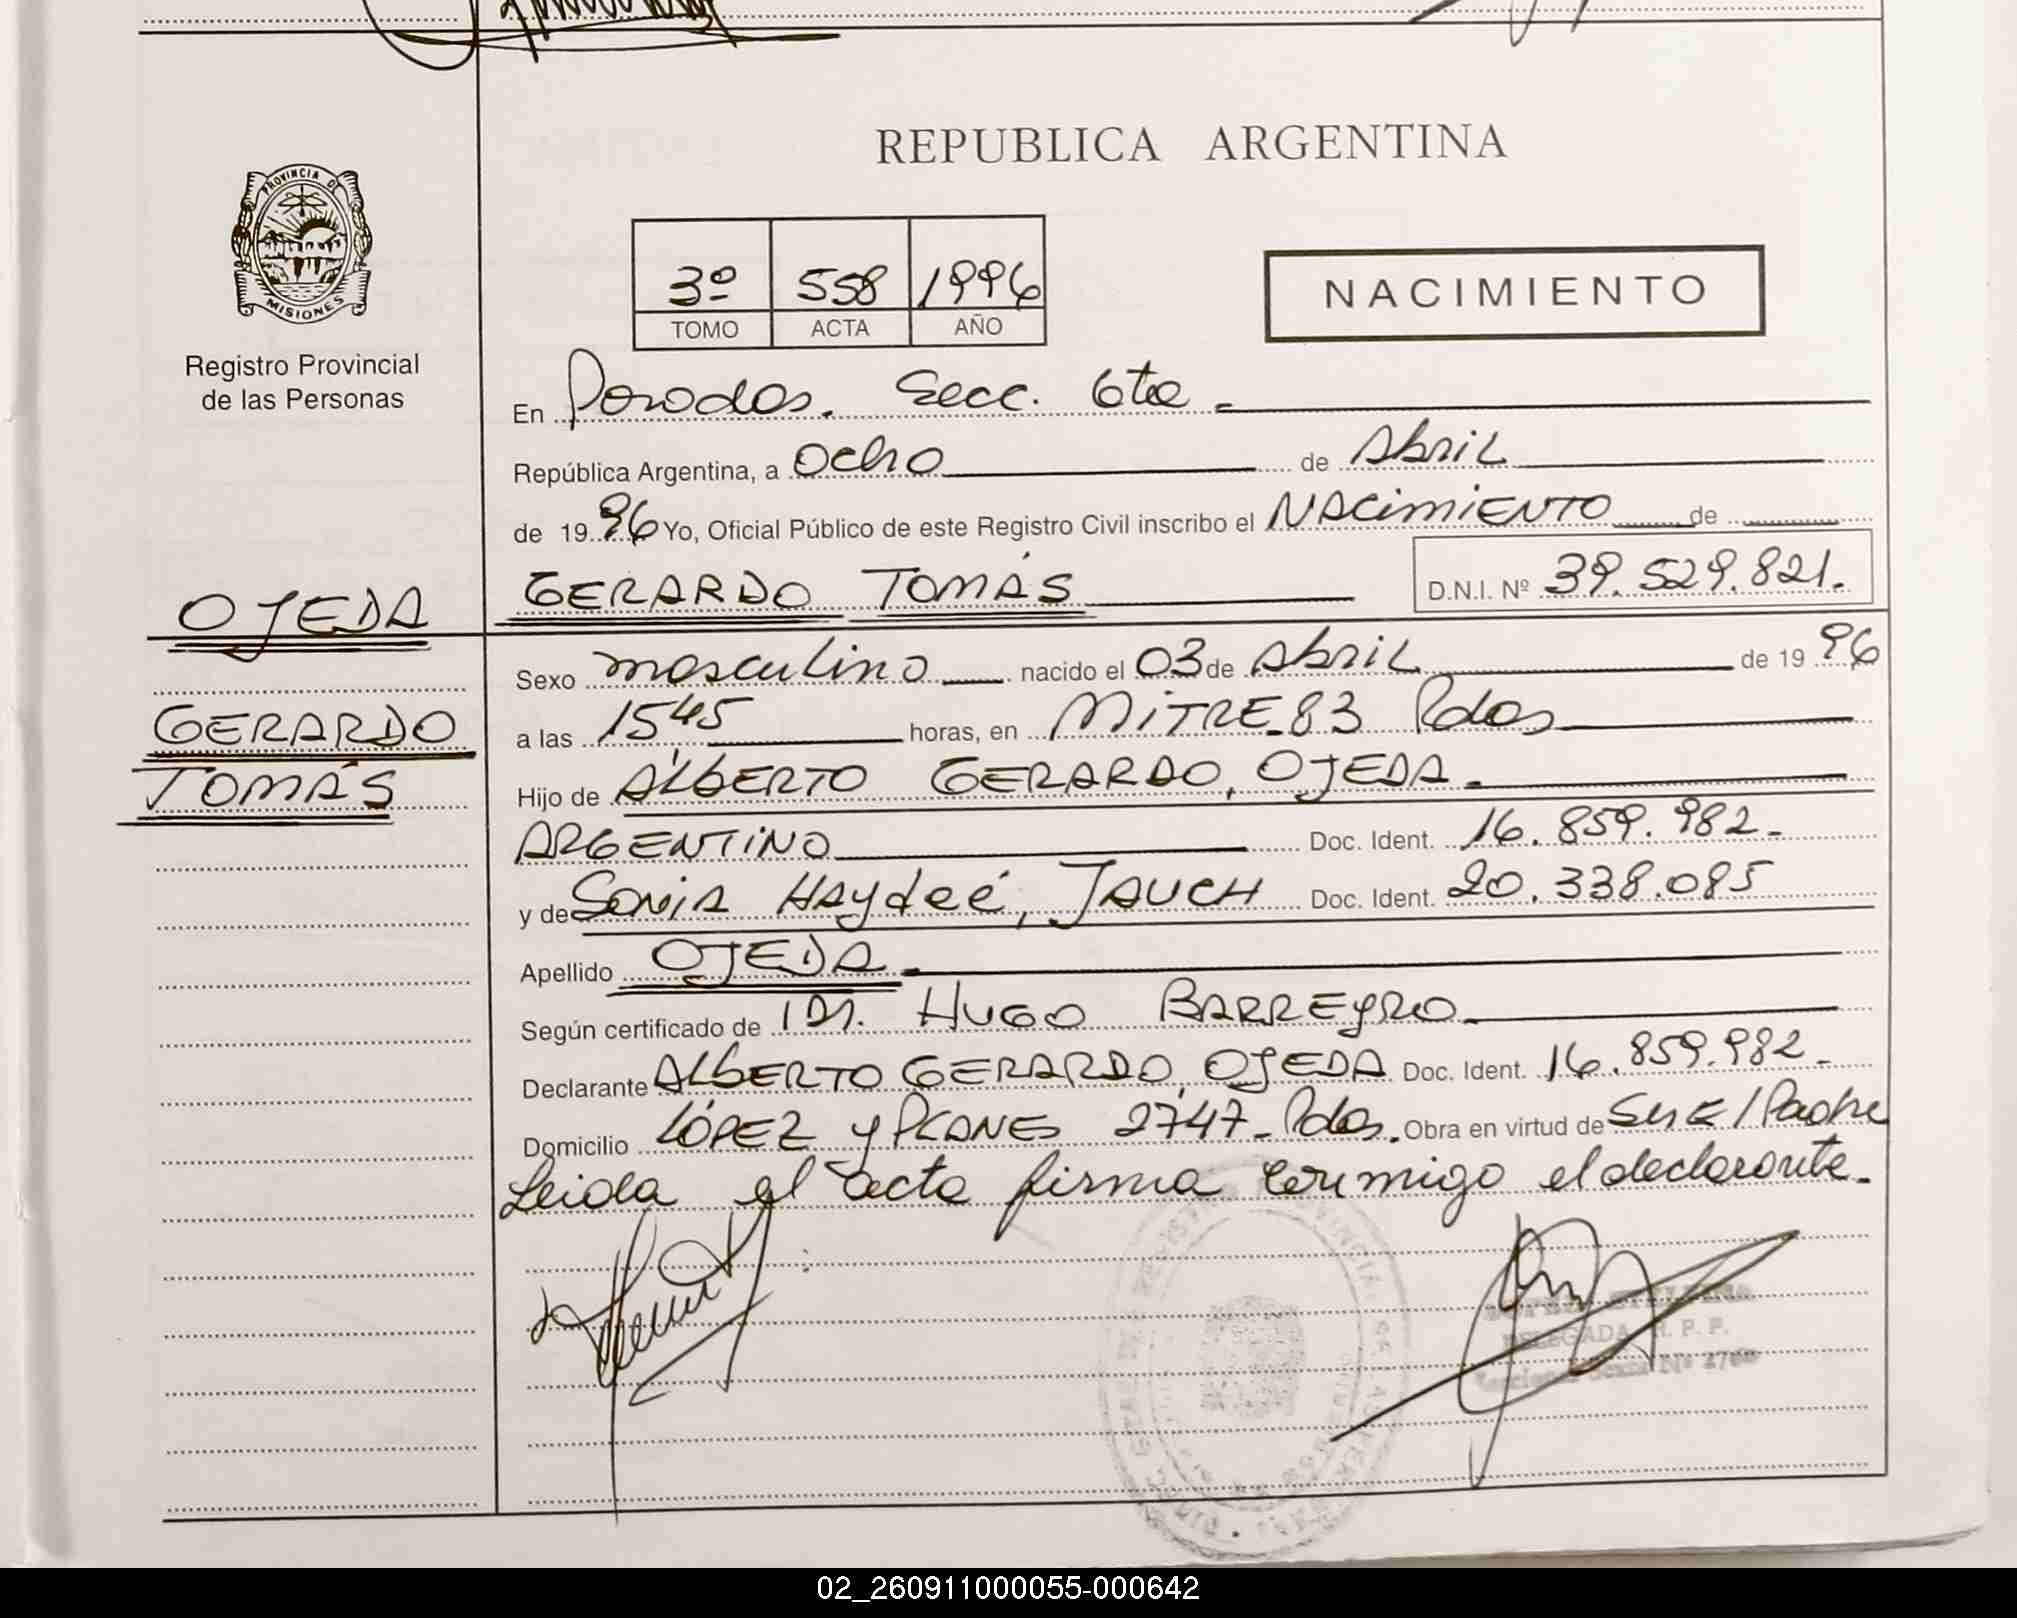 REPUBLICA ARGENTINA
PROVINCIA DE
MISIONES
Registro Provincial
de las Personas
3º 558 1996
TOMO ACTA AÑO
NACIMIENTO
En Posadas. Secc. 6ta.
República Argentina, a Ocho de Abril
de 1996 Yo, Oficial Público de este Registro Civil inscribo el NACIMIENTO de
GERARDO TOMÁS D.N.I. Nº 39.529.821.
OJEDA
GERARDO
TOMÁS
Sexo masculino nacido el 03 de Abril de 1996
a las 1545 horas, en MITRE 83 Pdas
Hijo de ALBERTO GERARDO, OJEDA.
ARGENTINO Doc. Ident. 16.859.982.
y de Sonia Haydeé, JAUCH Doc. Ident. 20.338.085
Apellido OJEDA.
Según certificado de Dr. HUGO BARREYRO
Declarante ALBERTO GERARDO, OJEDA Doc. Ident. 16.859.982.
Domicilio LÓPEZ y PLANES 2747 - Pdas. Obra en virtud de Ser El Padre
Leida el acta firma conmigo el declarante.
DELEGADA R. P. P.
02_260911000055-000642